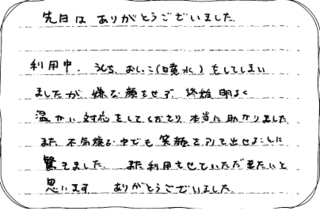 先日は ありがとうございました
利用中、うんち、おしっこ(噴水)をしてしまい
ましたが 嫌な顔をせず 終始 明るく
温かい 対応をしてくださり 本当に 助かりました
また 不気嫌な中でも 笑顔を引き出せることに
驚きました。 また 利用させていただきたいと
思います ありがとうございました。